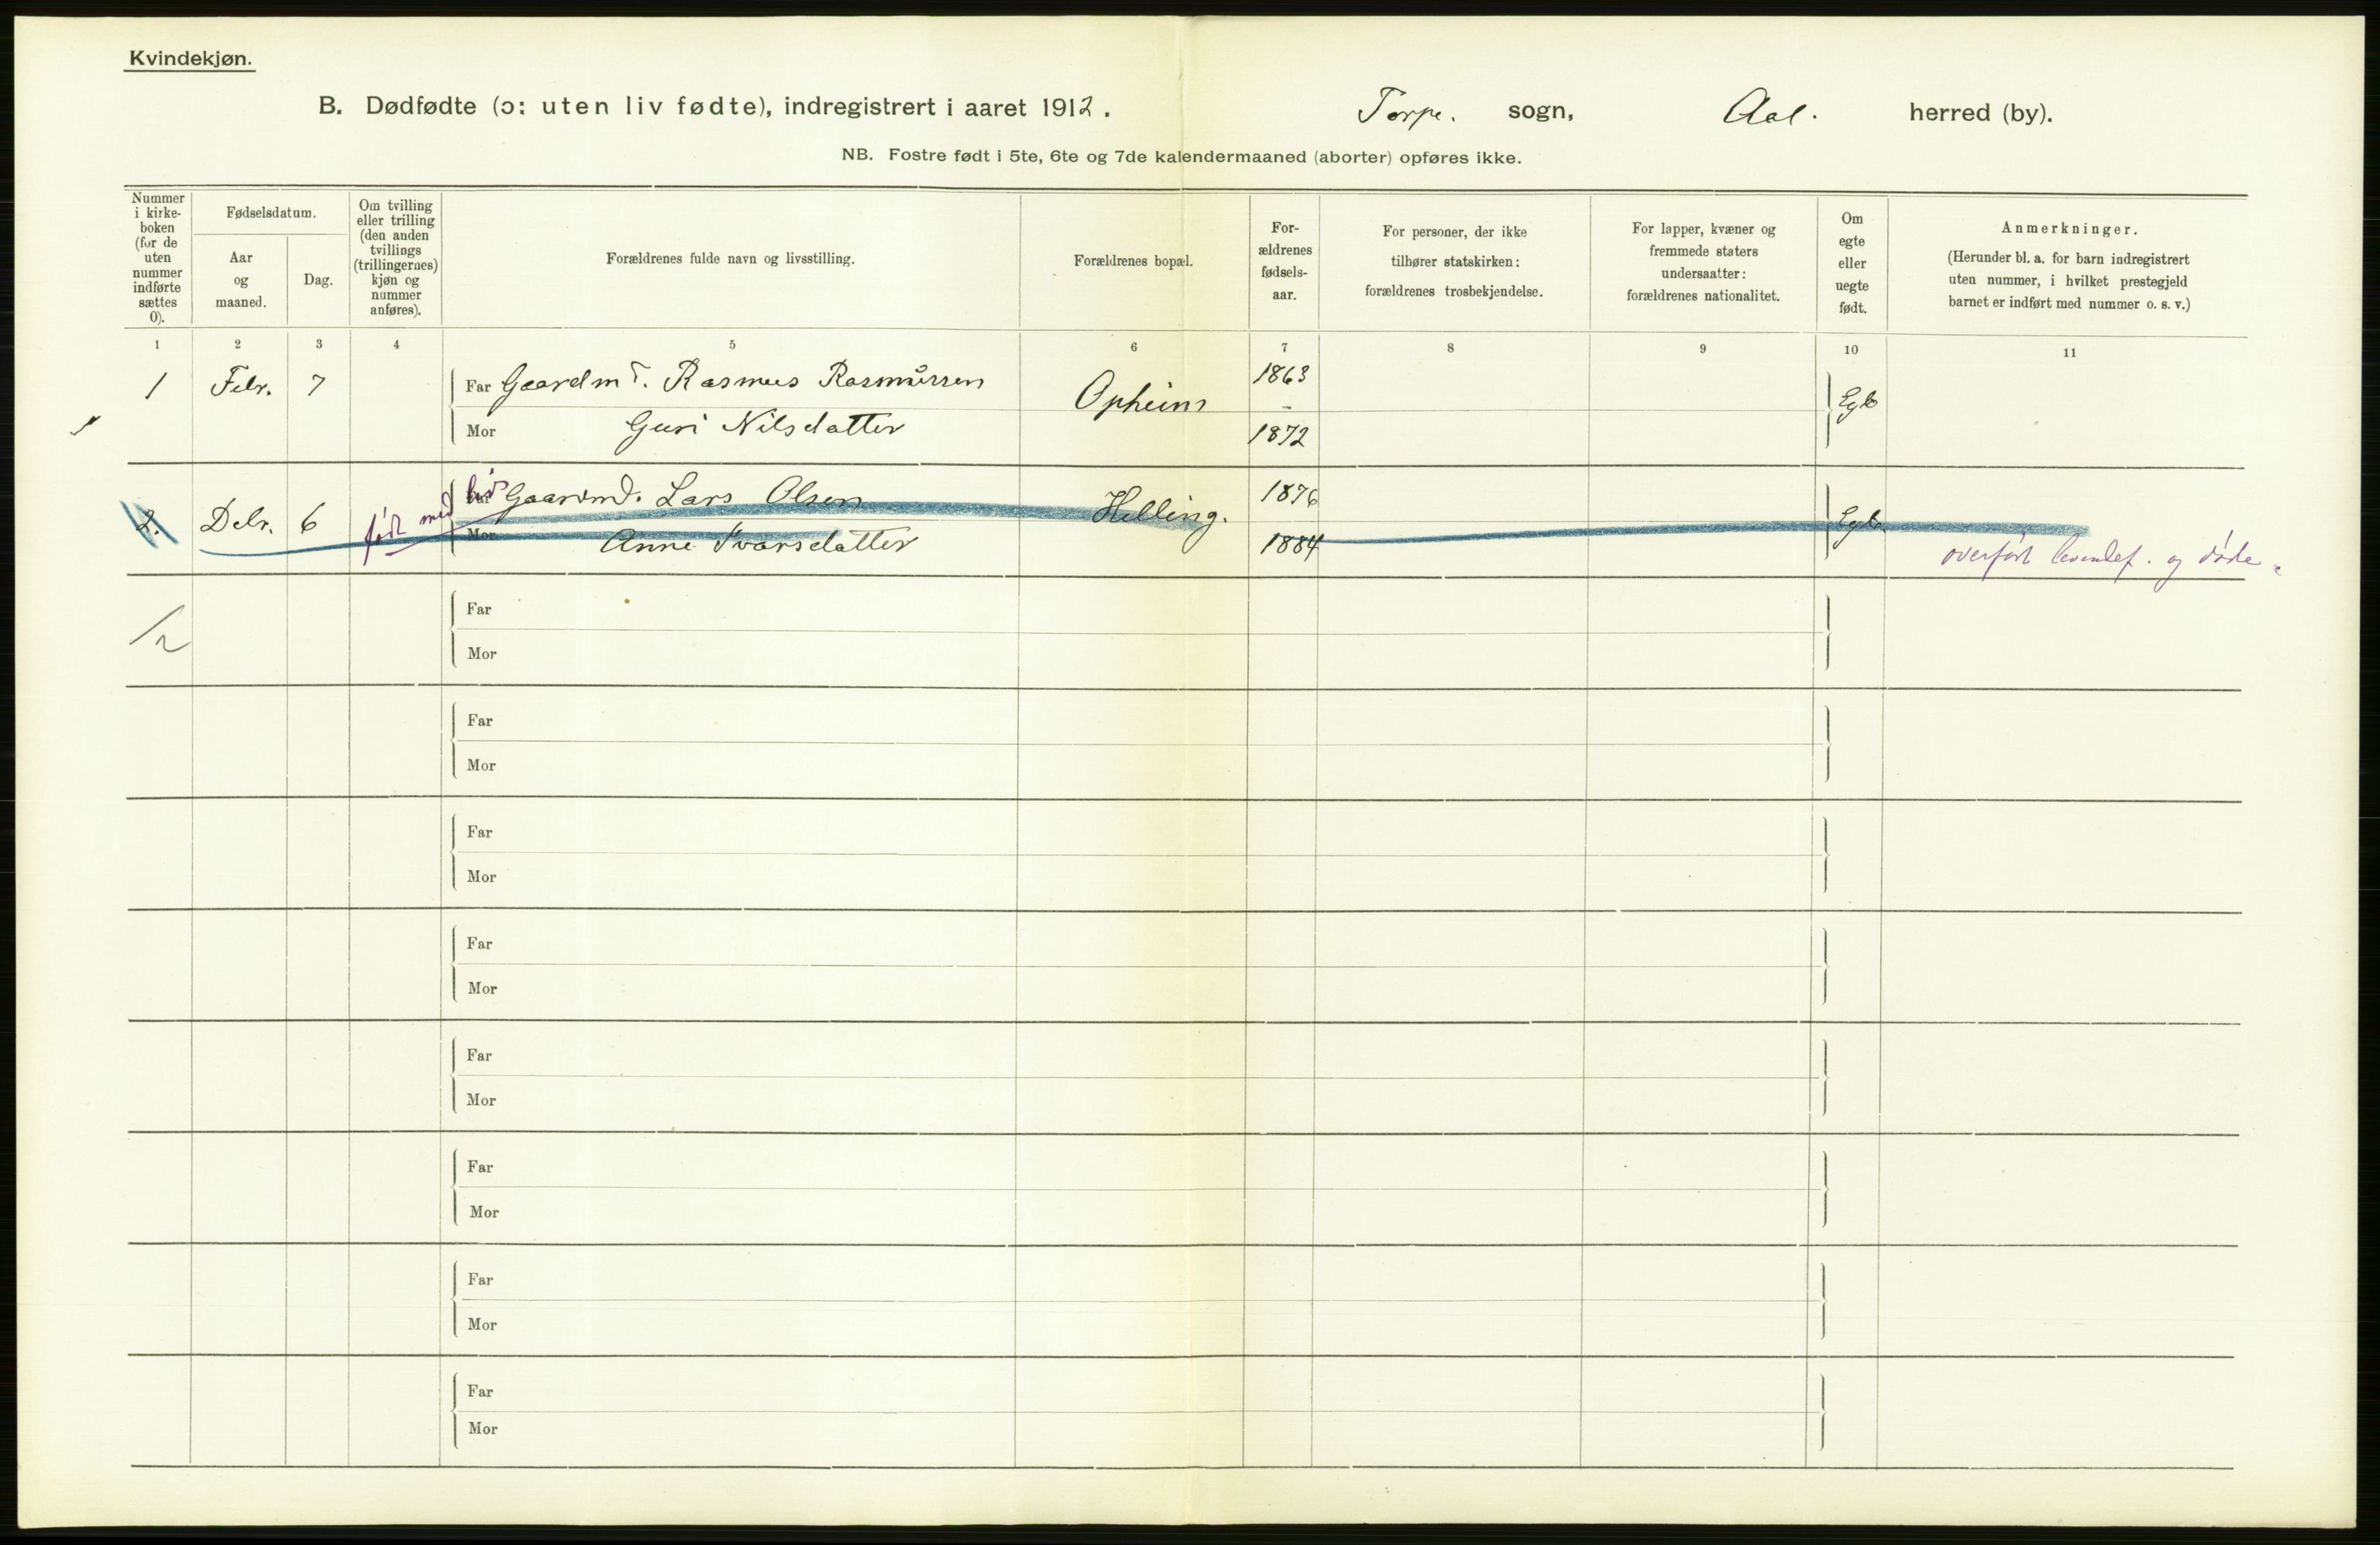 Kvindekjøn.
B. Dødfødte (ɔ: uten liv fødte), indregistrert i aaret 1912. Torpe. sogn, Aal. herred (by).
NB. Fostre født i 5te, 6te og 7de kalendermaaned (aborter) opføres ikke.
Nummer
i kirke-
boken
(for de
uten
nummer
indførte
sættes
0).
Fødselsdatum.
Aar
og
maaned.
Dag.
Om tvilling
eller trilling
(den anden
tvillings
(trillingernes)
kjøn og
nummer
anføres).
Forældrenes fulde navn og livsstilling.
Forældrenes bopæl.
For-
ældrenes
fødsels-
aar.
For personer, der ikke
tilhører statskirken:
forældrenes trosbekjendelse.
For lapper, kvæner og
fremmede staters
undersaatter:
forældrenes nationalitet.
Om
egte
eller
uegte
født.
Anmerkninger.
(Herunder bl. a. for barn indregistrert
uten nummer, i hvilket prestegjeld
barnet er indført med nummer o. s. v.)
1 2 3 4 5 6 7 8 9 10 11
1 Febr. 7 Far Gaardm d. Rasmus Rasmussen Opheim 1863 Egte
Mor Guri Nilsdatter 1872
2. Debr. 6 født med liv Far Gaardmd. Lars Olsen Helling. 1876 Egte
Mor Anne Ivarsdatter 1884
overført levendef. og døde.
1/2
Far
Mor
Far
Mor
Far
Mor
Far
Mor
Far
Mor
Far
Mor
Far
Mor
Far
Mor